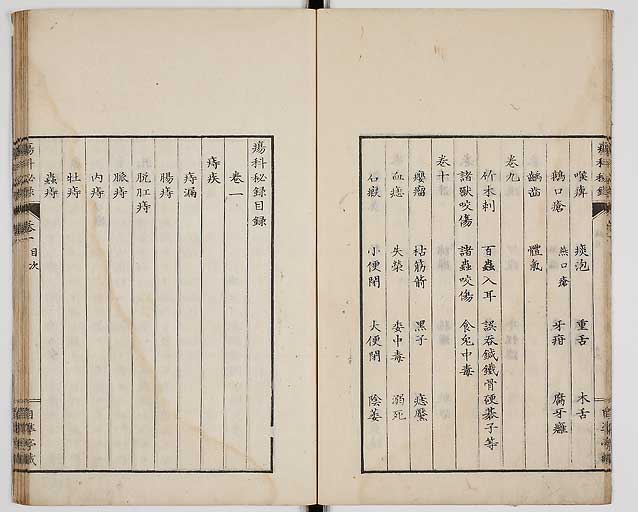 喉痺 痰泡 重舌 木舌
鵝口瘡 燕口瘡 牙疳 腐牙癰
齲齒 體氣
卷九
竹木刺 百蟲入耳 誤吞鍼鐵骨硬碁子等
諸獸咬傷 諸蟲咬傷 食兔中毒
卷十
癭瘤 枯筋箭 黑子 痣黶
血痣 失榮 中毒 溺死
石瘕 小便閉 大便閉 陰萎
瘍科秘録目録
卷一
痔疾
痔漏
腸痔
脱肛痔
脈痔
内痔
牡痔
蟲痔
瘍科秘録 卷一 目次